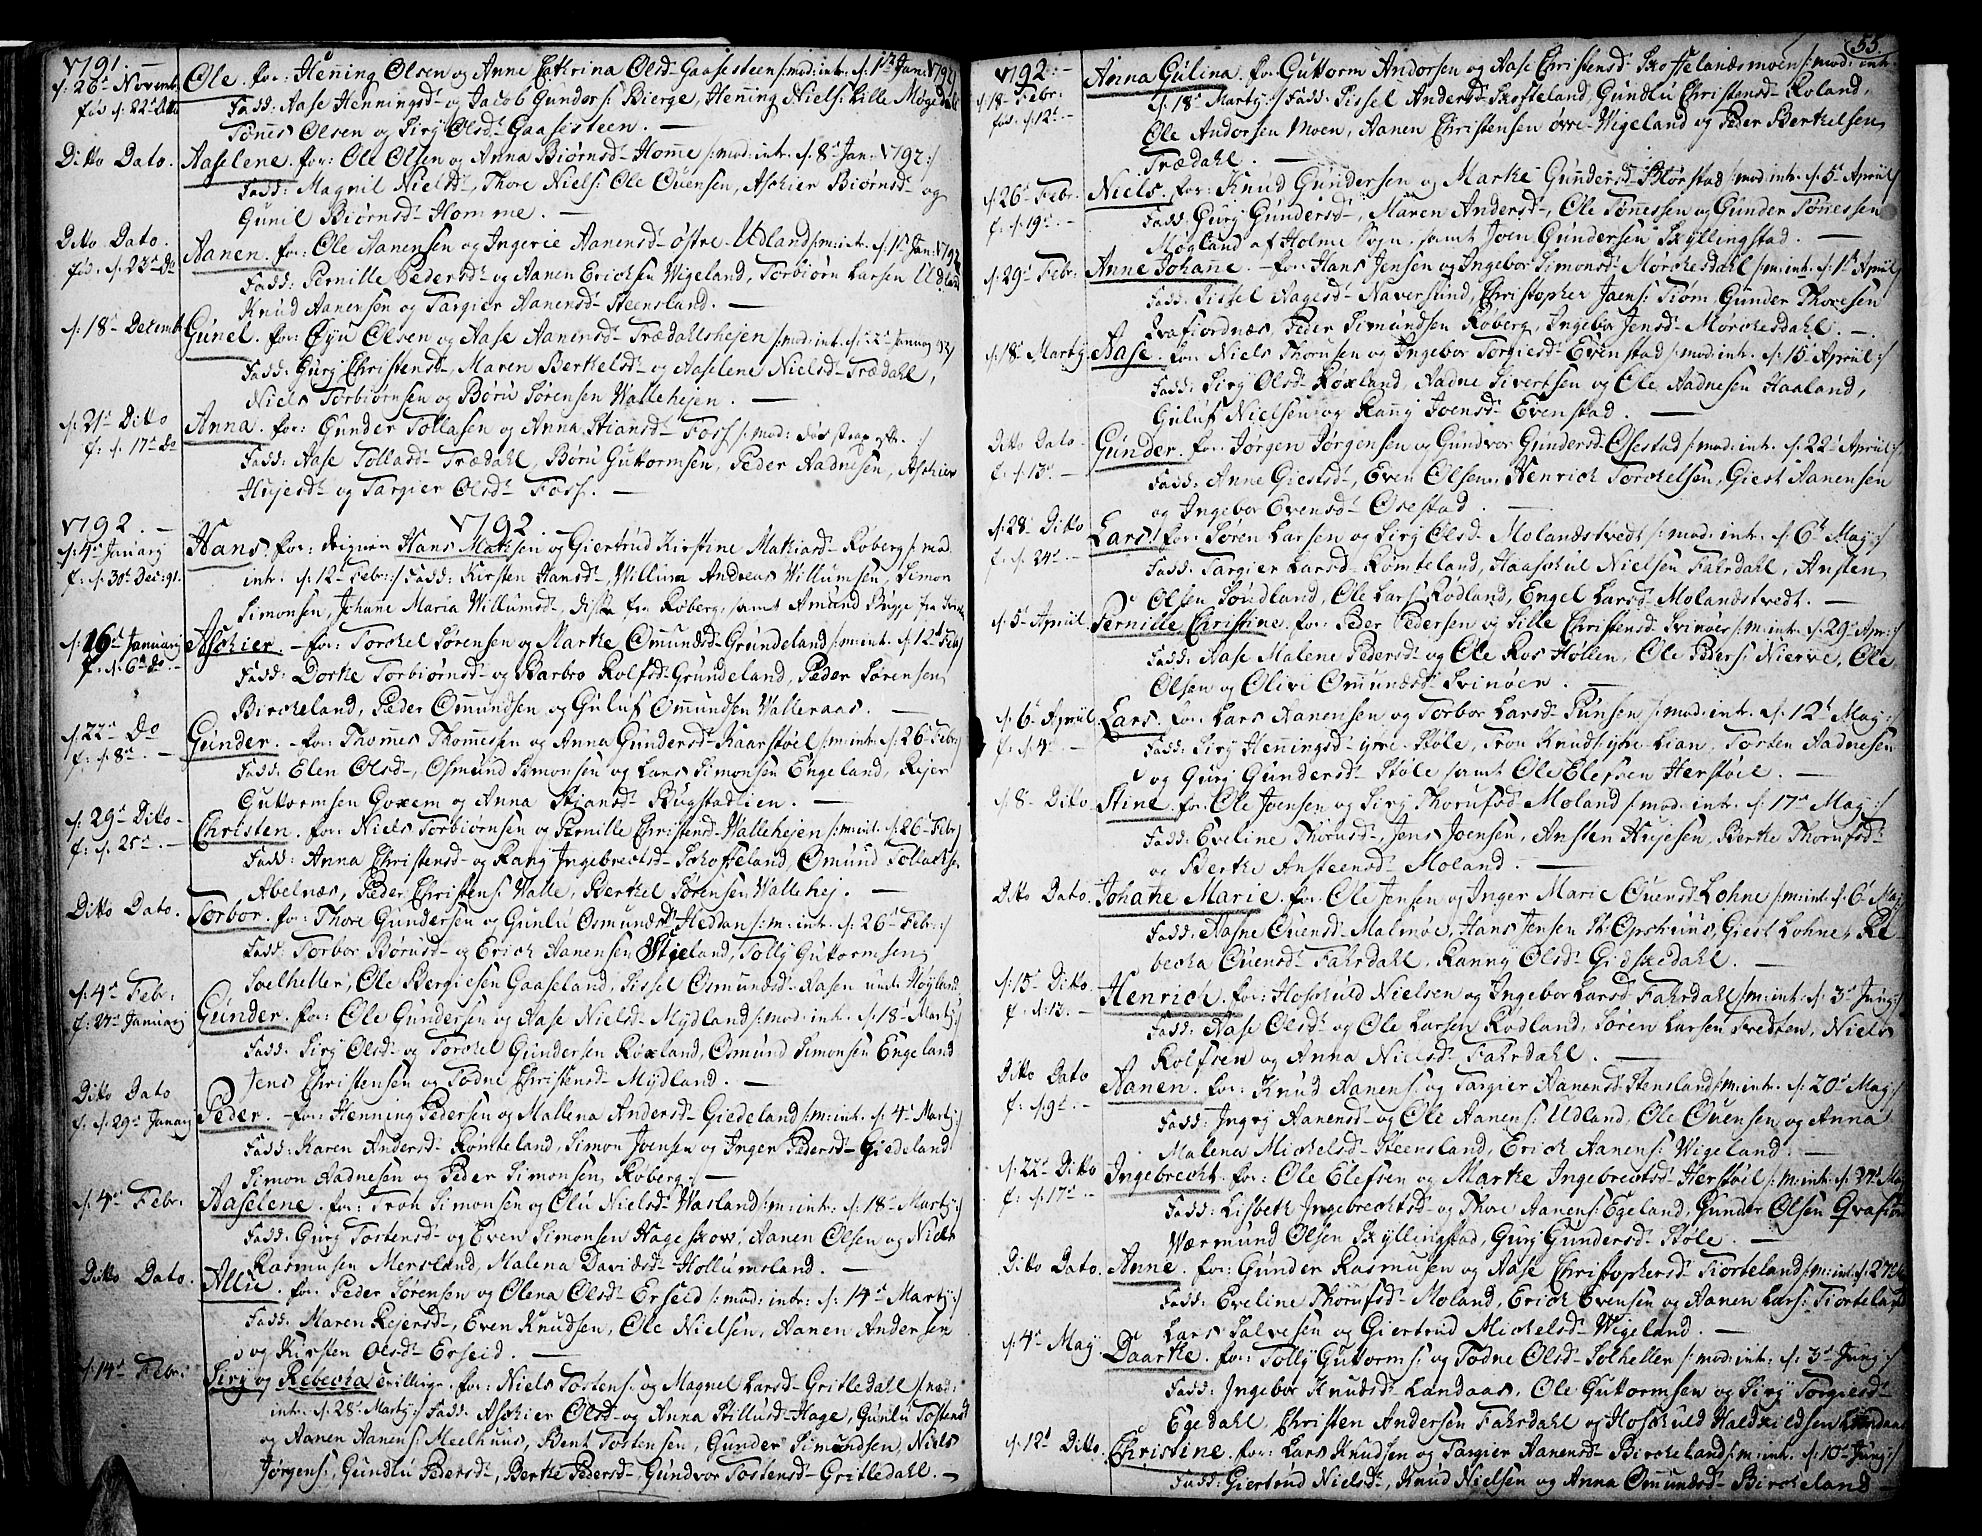 1791.
d: 26de Novembr
fød d: 22de dito
Ole. for: Henning Olsen og Anne Cathrina Olsd- Gaasesteen /:mod: intr. d: 1te Jan: 1792/
Fadd: Aase Henningsd- og Jacob Gunders: Bierge, Henning Niels: Lille Møgedahl
Tønnes Olsen og Siri Olsd- Gaasesteen. —
Ditto Dato.
Aaselene. for: Ole Olsen og Anna Biørnsd- Homme /:mod: intr. d: 8de Jan: 1792:/
Fadd: Magnil Nielsd-, Thore Niels: Ole Ouensen, Aschier Biørnsd- og
Gunil Biørnsd- Homme. —
Ditto Dato.
fød. d: 23de Do
Aanen. for: Ole Aanensen og Ingerie Aanensd- østre-Udland /:m: intr. d: 1te Jan: 1792
Fadd: Pernille Pedersd- og Aanen Ericksen Wigeland, Torbiørn Larsen Udland
Knud Aanensen og Targier Aanensd- Steensland. —
d: 18de Decembr
Gunel. for: Øyu Olsen og Aase Aanensd- Trædahlshejen /:mod: intr. d: 22de Januarj 92/
Fadd: Gurj Christensd-, Maren Berthelsd- og Aaselene Nielsd- Trædahl,
Niels Torbiørnsen og Børu Sørensen Wallehejen. —
d: 21de Ditto
f: d: 17de Do
Anna. for: Gunder Tollasen og Anna Stiansd- Foss /:mod: døs strax eftr. :/
Fadd: Aase Tollasd- Trædahl, Børu Guttormsen, Peder Aadnesen, Aschier
Hujesd- og Targier Olsd- Foss. —
1792. —
1792
d: 4de Januarj
f: d: 30te Dec: 91.
Hans. for: Hans Mathisen og Giertrud Kirstine Mathiasd- Roberg /: mod:
intr. d: 12te Febr:/ Fadd: Kirsten Hansd-, Willum Andreas Willumsen, Simon
Simonsen, Johane Maria Willumsd-, diste fra Roberg, samt Amund Bugge fra
d: 16de Januarij
f: d: 6de do —
Aschier. —for: Torckel Sørensen og Marthe Omundsd- Grundeland /:m: intr. d: 12te Feb/
Fadd: Dorthe Torbiørnsd- og Barbro Rolfsd- Grundeland, Peder Sørensen
Birckeland, Peder Omundsen og Guluf Omundsen Walleraas. —
d: 22de Do
f: d: 8de. —
Gunder. —for: Thomes Thomesen og Anna Gundersd- Kaarstøel /:m: intr. d: 26de Febr/
Fadd: Elen Olsd-, Osmund Simonsen og Lars Simonsen Engeland, Rejer
Guttormsen Goxem og Anna Stiansd- Rugstadlien. —
d: 29de Ditto —
f: d: 25de. —
Christen. for: Niels Torbiørnsen og Pernille Christensd- Wallehejen /:m: int. d: 26de Febr/
Fadd: Anna Christensd- og Ranj Ingebrectsd- Schofteland, Omund Tollachs:
Abelnæs, Peder Christens: Walle, Berthel Sørensen Wallehej. —
Ditto Dato.
Torbor. for: Thore Gundersen og Gunlu Osmundsd- Heddan /:m: intr. d: 26de Febr:/
Fadd: Torbor Børusd- og Erick Aanensen Stieland, Tolly Guttormsen
Solheller, Ole Bergiesen Gaaseland, Sissel Osmundsd- Aasen under Høyland
d: 4de Febr:
f: 27de Januarj
Gunder. for: Ole Gundersen og Aase Nielsd- Mydland /:mod: intr. d: 18de Marty:/
Fadd: Sirj Olsd- og Torckel Gundersen Roxland, Osmund Simonsen Engeland
Jens Christensen og Todne Christensd- Mydland. —
Ditto Dato
f. d: 29de Januarj
Peder. —for: Henning Pedersen og Mallena Andersd- Giedeland /:m: int. d: 4de Marty:/
Fadd: Karen Andersd- Romteland, Simon Joensen og Inger Pedersd- Giedeland
Simon Aadnesen og Peder Simonsen, Roberg. —
d: 4de Febr:
Aaselene. for: Tron Simonsen og Olu Nielsd- Wasland /:m: intr. d: 18de Marty:/
Fadd: Gurj Tostensd- og Even Simonsen Hageskow, Aanen Olsen og Niels
Rasmusen Mersland, Malena Davidsd- Hollumsland. —
Ditto Dato.
Allu. for: Peder Sørensen og Olena Olsd- Erseid /:mod: intr: d: 14de Marty:/
Fadd: Maren Rejersd-, Even Knudsen, Ole Nielsen, Aanen Andersen
og Kirsten Olsd- Erseid. —
d: 14de Febr:
Sirj og Rebecka tvillinge. for: Niels Tostens: og Magnel Larsd- Gritledahl /:mod:
intr. d: 28de Marty:/ Fadd: Aschier Olsd- og Anna Stillusd- Hage, Gunlu Tostensd
og Aanen Aanens: Meelhuus, Bent Tostensen, Gunder Simundsen, Niels
Jørgens:, Gundlu Pedersd-, Berthe Pedersd-, Gundvor Tostensd- Gritledahl. —
55.
1792. —
d: 18de Febr:
fød. d: 12te —
Anna Gulina. for: Guttorm Andorsen og Aase Christensd- Skoffelandsmoen /: mod: intr.
d: 18de Marty:/ Fadd: Sissel Andersd- Skofteland, Gundlu Christensd- Roland,
Ole Andorsen Moen, Aanen Christensen øvre-Wigeland og Peder Berthelsen
Trædahl. —
d: 26de Febr
f. d: 19de. —
Niels. for: Knud Gundersen og Marthe Gundersd- Blørstad /:mod: intr. d: 5te Apriil/
Fadd: Gurj Gundersd-, Maren Andersd-, Ole Tønessen og Gunder Tønessen
Møgland af Holme Sogn. samt Joen Gundersen Skyllingstad. —
d: 29de Febr:
Anne Johane. —for: Hans Jensen og Ingebor Simonsd- Mørckesdahl /:m: int. d: 1te Apriil/
Fadd: Sissel Aagesd- Naversund, Christopher Joens: Tiøm, Gunder Thoresen
Qvafiordnæs, Peder Simundsen Roberg, Ingebor Jensd- Mørckesdahl. —
d: 18de Martij
Aase. for: Niels Thorusen og Ingebor Torgiesd- Evenstad /:mod: intr. d: 15de Apriil:/
Fadd: Sirj Olsd- Roxland, Aadne Sivertsen og Ole Aadnesen Haaland,
Guluf Nielsen og Ranj Joensd- Evenstad. —
Ditto Dato.
f: d: 13de. —
Gunder. for: Jorgen Jørgensen og Gundvor Gundersd- Osestad /:mod: intr. d: 22de Apriil:/
Fadd: Anne Giestsd-, Even Olsen, Henrich Torckelsen, Giest Aanensen
og Ingebor Evensd- Osestad. —
d: 28de Ditto
f: d: 24de. —
Lars. for: Søren Larsen og Sirj Olsd- Molandstvedt /:mod: intr. d: 6te Maj:/
Fadd: Targier Larsd- Romteland, Haaschul Nielsen Fahrdahl, Ansten
Olsen Sondland, Ole Lars: Rødland, Engel Larsd- Molandstvedt. —
d: 5te Apriil.
Pernille Christine. for: Peder Pedersen og Sille Christensd- Svinøer /:m: int. d: 29de Apr:/
Fadd: Aase Malene Pedersd- og Ole Ros Hollen, Ole Peders: Nierve, Ole
Olsen og Olivi Omundsd- Svinøer. —
d: 6te Apriil
f: d: 4de —
Lars. for: Lars Aanensen og Torbor Larsd- Sunsen /:mod: intr. d: 12te Maj:/
Fadd: Sirj Henningsd- yttre-Støle, Tron Knudsen yttre-Lian, Torsten Aadnesen
og Gurj Gundersd- Støle samt Ole Elefsen Herstøel. —
d: 8de Ditto
Stine. for: Ole Joensen og Sirj Thorufsd- Moland /:mod: intr. d: 17de Maj:/
Fadd: Eveline Thorusd-, Jens Joensen, Ansten Hujesen, Berthe Thorufsd-
og Berthe Ansteensd- Moland. —
Ditto Dato.
Johane Marie. for: Ole Jensen og Inger Marie Ouensd- Lohne /:m: int. d: 6te Maj
Fadd: Aasne Ouensd- Malmøe, Hans Jensen Opsahuus, Giest Lohne, Re-
becka Ouensd- Fahrdahl, Ranny Olsd- Gidskedahl. —
d: 15de Ditto.
f. d: 13. —
Henrich. for: Hoschuld Nielsen og Ingebor Larsd- Fahrdahl /:m: int: d: 3de Junj:/
Fadd: Aase Olsd- og Ole Larsen Rodland, Søren Larsen Tvedten, Niels
Rolfsen og Anna Nielsd- Fahrdahl. —
Ditto Dato
f: d: 9de. —
Aanen. for: Knud Aanens: og Targier Aanensd- Stensland /:m: intr. d: 20de Maj:/
Fadd: Ingrj Aanensd- og Ole Aanens: Udland, Ole Ouensen og Anna
Malena Mickelsd- Steensland, Erick Aanens: Wigeland. —
d: 22de Ditto
f: d: 17de. —
Ingebrecht. for: Ole Elefsen og Marthe Ingebrectsd- Herstøel /:m: int. d: 27de Maj
Fadd: Lisbeth Ingebrechtsd- og Thore Aanens: Egeland, Gunder Olsen Qvafiord
Wærmund Olsen Skyllingstad, Gurj Gundersd- Støle. —
Ditto Dato.
Anne. for: Gunder Rasmusen og Aase Christophersd- Tiorteland /:m: int: d: 27de
Fadd: Eveline Thorufsd- Moland, Erick Evensen og Aanen Lars: Tiorteland
Lars Salvesen og Giertrud Mickelsd- Wigeland. —
d: 4de Maj
Daarthe. for: Tolly Guttorms: og Todne Olsd- Solheller /:mod: intr: d: 3de Junj:/
Fadd: Ingebor Knudsd- Landaas, Ole Guttormsen og Sirj Torgiesd-
Egedahl, Christen Andersen Fahrdahl og Hoschuld Haldkildsen Landaas
d: 12te Ditto.
Christine. for: Lars Knudsen og Targier Aanensd- Birckeland /:m: intr. d: 10de Junj:/
Fadd: Giertrud Nielsd-, Knud Nielsen og Anna Omundsd- Birckeland —